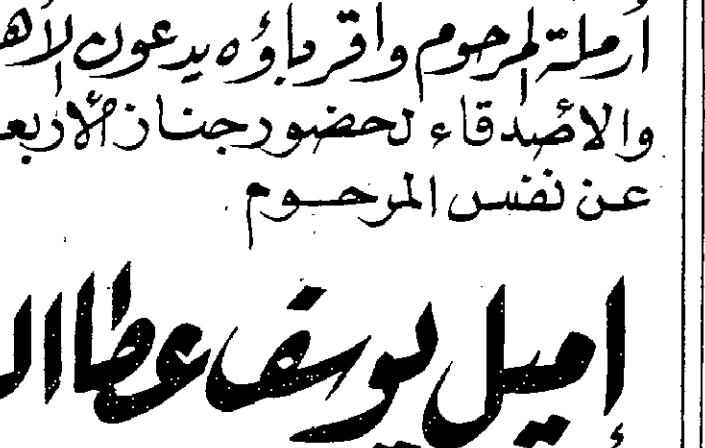 أرملة المرحوم واقرباؤه يدعون الأه
والأصدقاء لحضور جناز الأربع
عن نفس المرحوم
إميل يوسف عطاال